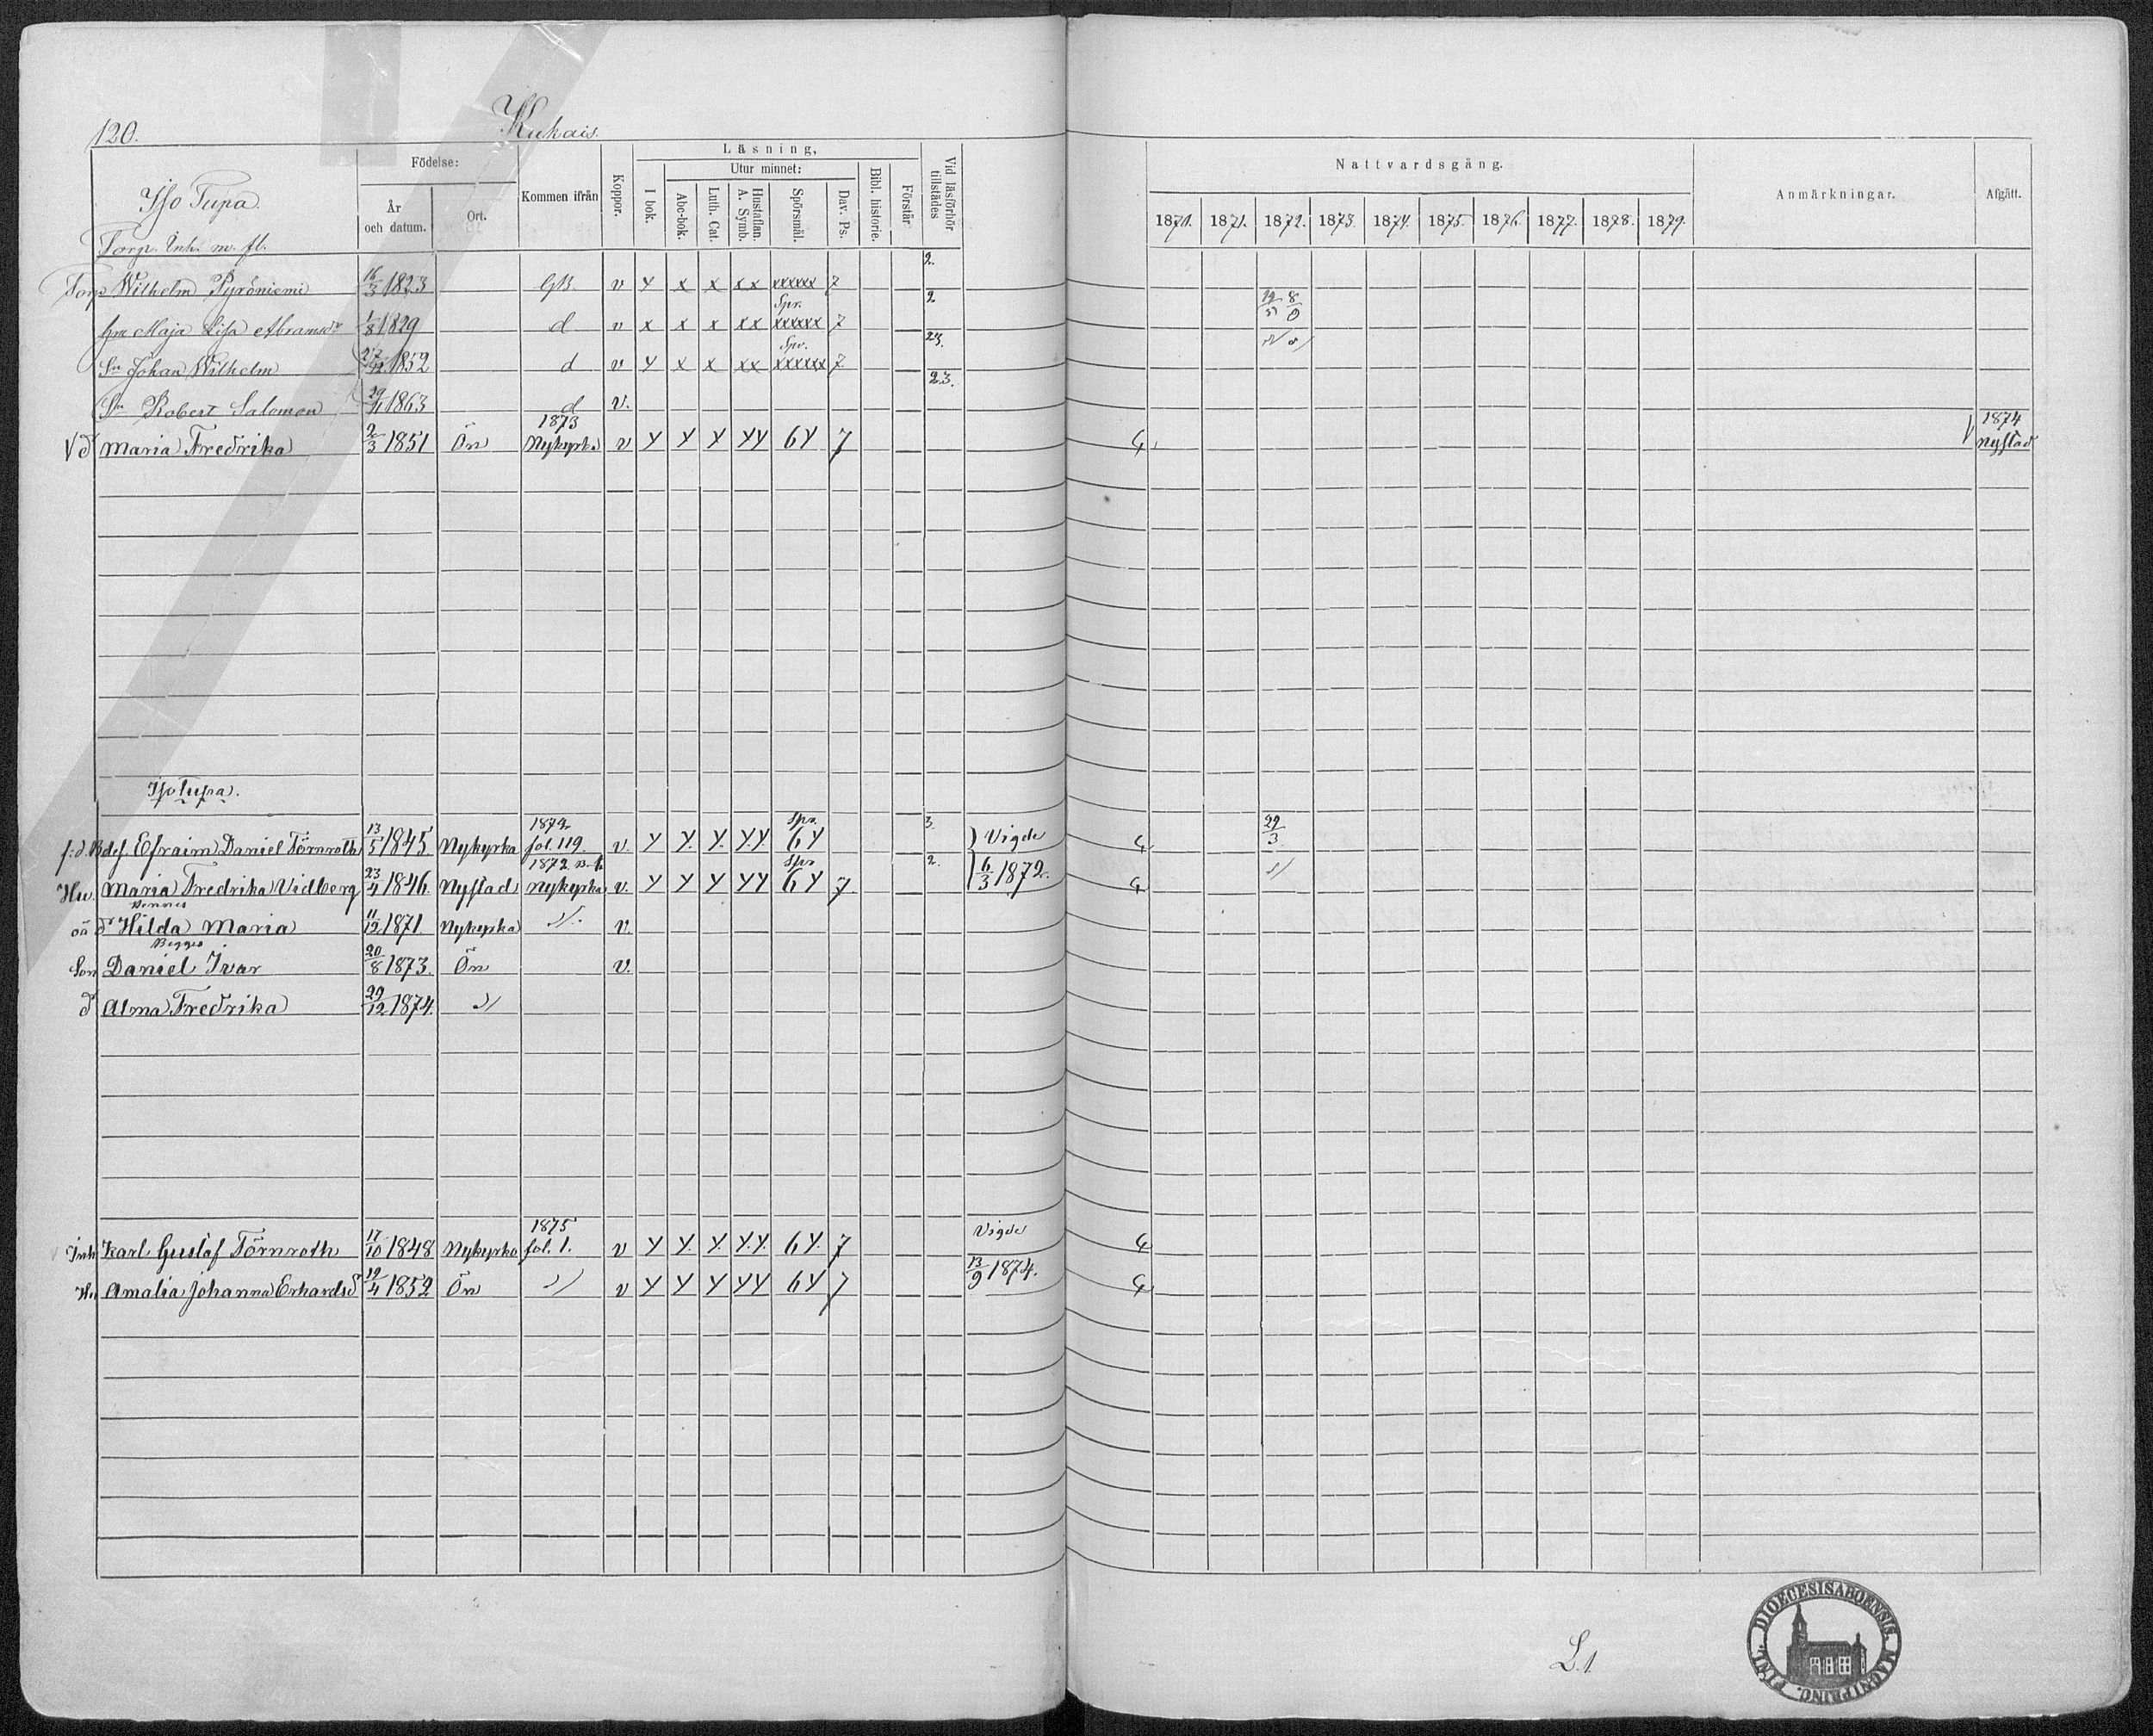 120.
Kukais.
Iso Tupa
Torp. Inh. m. fl.
Födelse:
År och datum.
Ort.
Kommen ifrån
Koppor.
Läsning,
I bok.
Utur minnet:
Abc-bok.
Luth. Cat.
Hustaflan. A. Symb.
Spörsmål.
Dav. Ps.
Bibl. historie.
Förstår
Vid läsförhör tillstädes
Nattvardsgång.
1870. 1871. 1872. 1873. 1874. 1875. 1876. 1877. 1878. 1879.
Anmärkningar.
Afgått.
Torp Wilhelm Pyröniemi 16/3 1823 GB. v y x x xx xxxxx 7 2.
hru Maja Lisa Abramsdr 1/8 1829 d v x x x xx Spr. xxxxx 7 2
Sn Johan Wilhelm 27/12 1852 d v y x x xx Spr. xxxxxx 7 23.
Sn Robert Salomon 29/11 1863 d v. 23.
Vd Maria Fredrika 2/3 1851 Ön 1873 Nykyrka v y y y yy 6y 7 1874 Nystad
Iso Tupa.
f:d. Bdef Efraim Daniel Törnroth 13/5 1845 Nykyrka 1872 fol. 119. v. y y y yy Spr. 6y 3. Vigde 22/3
Hu. Maria Fredrika Vidberg 23/4 1846 Nystad 1872 Nykyrka v. y y y yy Spr 6y 7 2. 6/3 1872.
Hennes
oä d Hilda Maria 11/12 1871 Nykyrka v.
Begges
Son Daniel Ivar 20/8 1873. Ön v.
d Alma Fredrika 29/12 1874.
Inh Karl Gustaf Törnroth 17/10 1848 Nykyrka 1875 fol. 1. v y y y yy 6y. 7 Vigde
Hu Amalia Johanna Erhardsd 19/4 1852 Ön v y y y yy 6y 7 13/9 1874.
L.1.
DIOECESIS ABOENSIS. MAGNI PRINC. FINL.